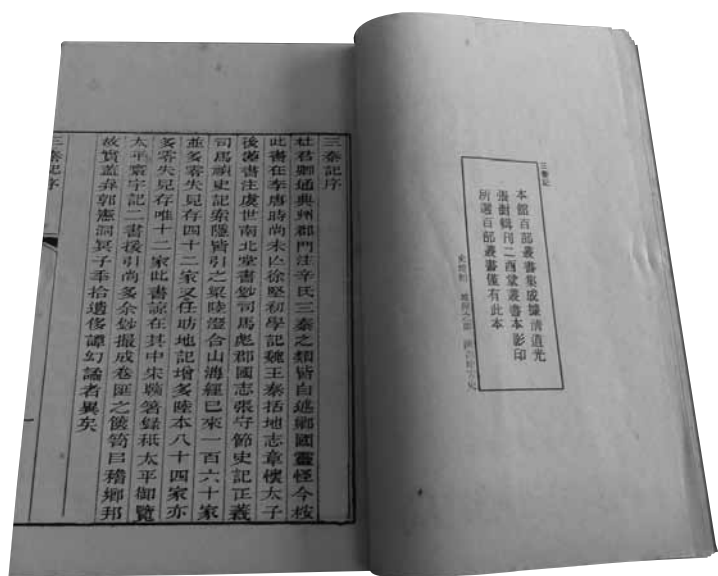 三秦記
本館百部叢書集成據清道光
張澍輯刊二酉堂叢書本影印
所選百部叢書僅有此本
三秦記序
杜君卿通典州郡門注辛氏三秦之類皆自述鄉國靈怪今桉
此書在李唐時尚未亾徐堅初學記魏王泰括地志章懷太子
後漢書注虞世南北堂書鈔司馬彪郡國志張守節史記正義
司馬史記索隱皆引之梁陸澄合山海經已來一百六十家
並多零失見存四十二家又任昉地記增多陸本八十四家亦
多零失見存唯十二家此書諒在其中朱贛箸錄祇太平御覽
太平寰宇記二書援引尚多余鈔撮成卷匯之篋笥曰稽鄉邦
故實葢弃郭憲洞冥子年拾遺侈譚幻譎者異矣
三秦記序